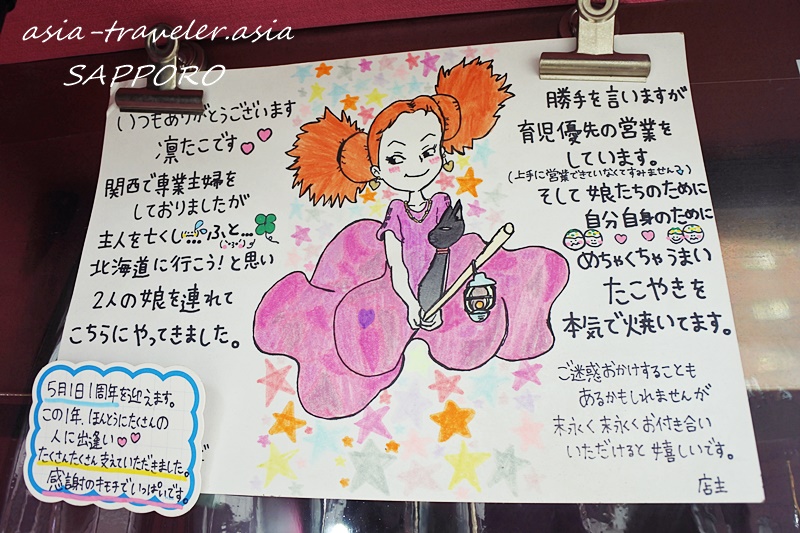 asia-traveler.asia
SAPPORO
いつもありがとうございます
凛たこです
関西で専業主婦を
しておりましたが
主人を亡くし…ふと…
北海道に行こう!と思い
2人の娘を連れて
こちらにやってきました。
5月1日1周年を迎えます。
この1年、ほんとうにたくさんの
人に出逢い
たくさんたくさん支えていただきました。
感謝のキモチでいっぱいです。
勝手を言いますが
育児優先の営業を
しています。
(上手に営業できていなくてすみません)
そして娘たちのために
自分自身のために
めちゃくちゃうまい
たこやきを
本気で焼いてます。
ご迷惑おかけすることも
あるかもしれませんが
末永く末永くお付き合い
いただけると嬉しいです。
店主